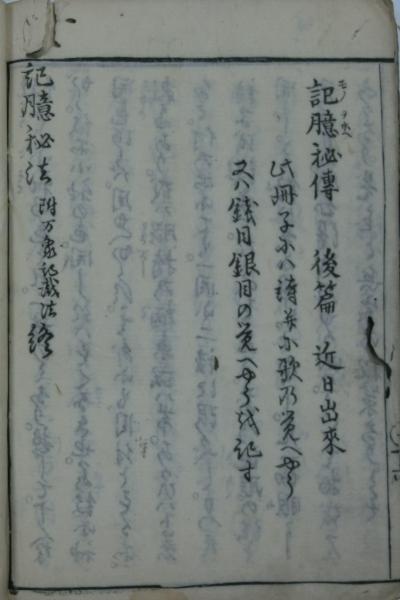 記臆秘傳 後篇 近日出來
此冊子にハ詩并に歌乃覚へやう
又ハ銭目銀目の覚へやうを記す
記臆秘法 附万象記識法 終